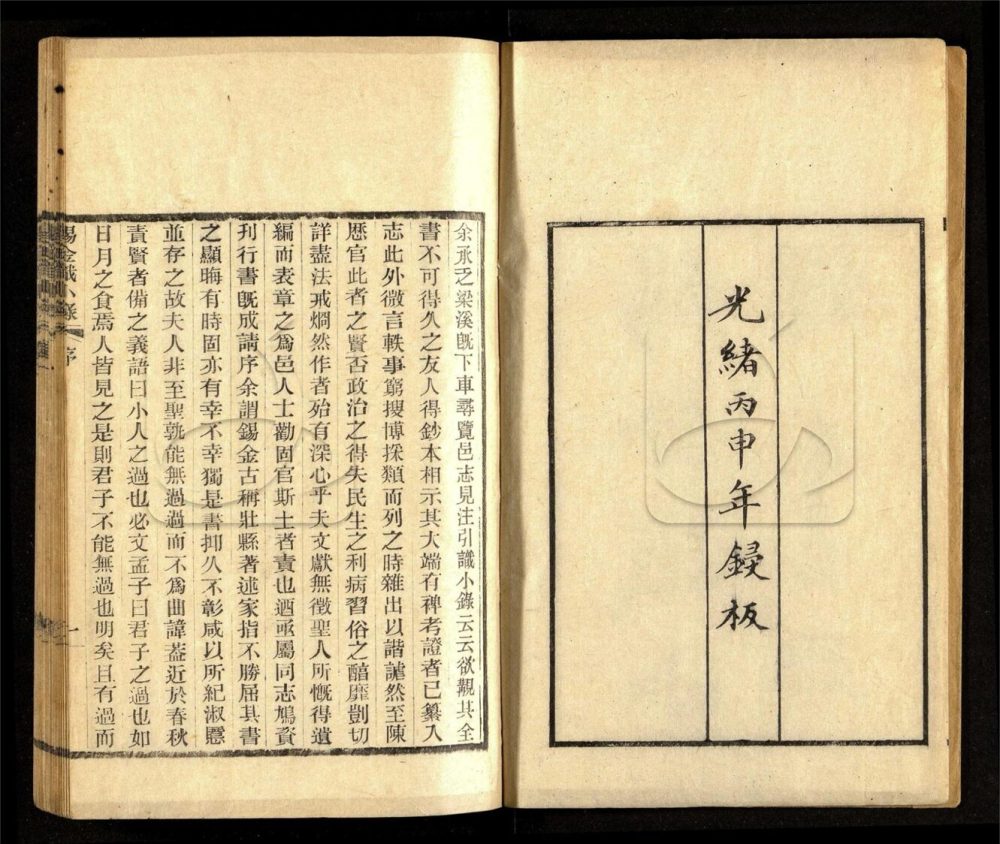 光緒丙申年鋟板
余承乏梁溪旣下車尋覽邑志見注引識小錄云云欲覯其全
書不可得久之友人得鈔本相示其大端有裨考證者已纂入
志此外微言軼事窮搜博採類而列之時雜出以諧謔然至陳
歷官此者之賢否政治之得失民生之利病習俗之醇靡剴切
詳盡法戒烱然作者殆有深心乎夫文獻無徵聖人所慨得遺
編而表章之爲邑人士勸固官斯土者責也迺亟屬同志鳩資
刋行書旣成請序余謂錫金古稱壯縣著述家指不勝屈其書
之顯晦有時固亦有幸不幸獨是書抑久不彰咸以所紀淑慝
並存之故夫人非至聖孰能無過過而不爲曲諱葢近於春秋
責賢者備之義語曰小人之過也必文孟子曰君子之過也如
日月之食焉人皆見之是則君子不能無過也明矣且有過而
錫金識小錄 序 一